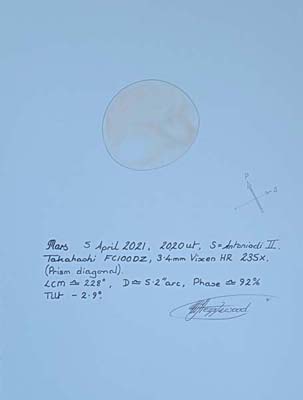 P
S
Mars 5 April 2021, 2020ut, S=Antoniadi II.
Takahashi FC100DZ, 3·4mm Vixen HR 235x.
(Prism diagonal).
LCM ≏ 228°, D≏5·2"arc, Phase ≏ 92%
Tilt - 2·9°.